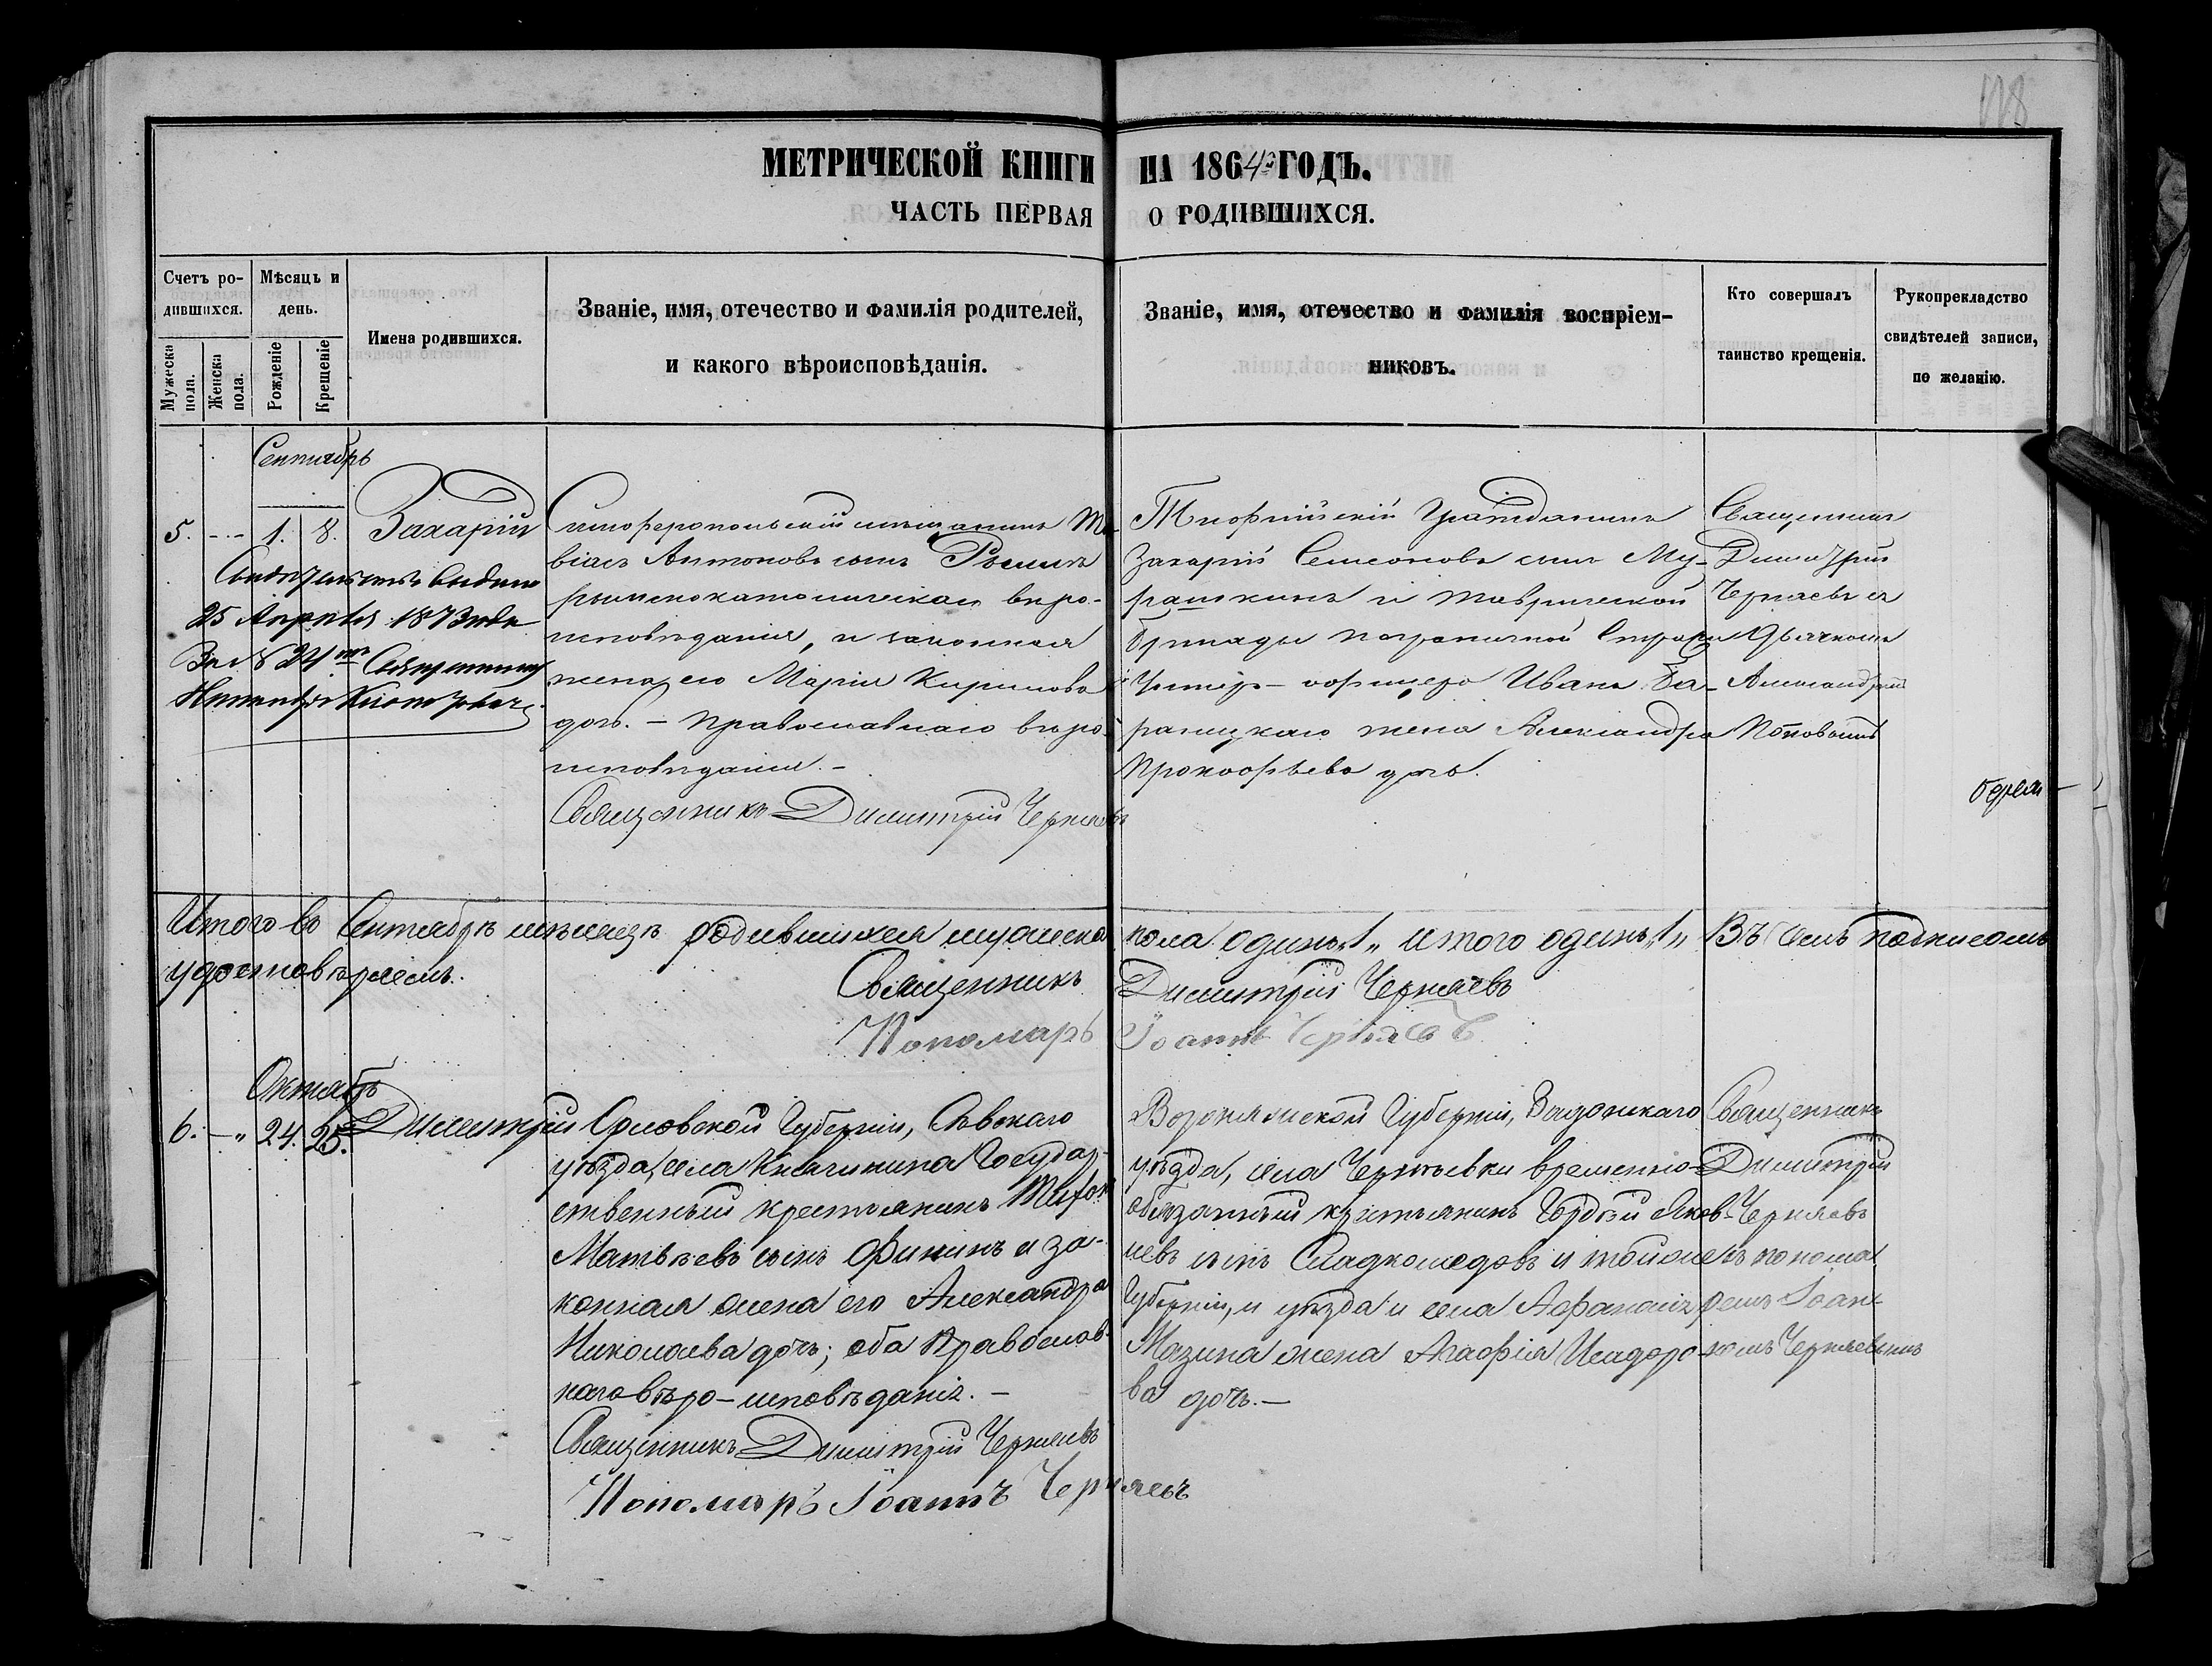 118
МЕТРИЧЕСКОЙ КНИГИ НА 1864й ГОДЪ.
ЧАСТЬ ПЕРВАЯ О РОДИВШИХСЯ.
Счетъ ро-
дившихся.
Мужеска пола.
Женска пола.
Мѣсяцъ и
день.
Рожденіе
Крещеніе
Имена родившихся.
Званіе, имя, отечество и фамилія родителей,
и какого вѣроисповѣданія.
Званіе, имя, отечество и фамилія воспріем-
никовъ.
Кто совершалъ
таинство крещенія.
Рукоприкладство
свидѣтелей записи,
по желанію.
Сентябрь
5. 1. 8. Захарій
Свидѣтельство выдано
25 Апрѣля 1873 года
За № 24мъ Священникъ
Симферопольскій мѣщанинъ
Антоновъ сынъ
римскокатолическаго вѣро-
исповѣданія, и законная
жена его Марія Кирилова
дочь. – Православнаго вѣро-
исповѣданія. –
Священникъ Димитрій Черняевъ
Гражданинъ
Захарій Семеоновъ сынъ Му-
рашкинъ и Таврической
бригады пограничной Стражи
Унтеръ-офицера Ивана Ба-
раницкаго жена Александра
Прокофьева дочь.
Священникъ
Димитрій
Черняевъ съ
Дьячкомъ
Александромъ
Поповымъ
Итого въ Сентябрѣ мѣсяцѣ родившихся мужеска пола одинъ „1„ итого одинъ „1„ Въ семъ подписомъ
удостовѣряемъ.
Священникъ Димитрій Черняевъ
Пономарь Іоаннъ Черняевъ
Октябрь
6. – „ 24. 25. Димитрій
Орловской Губерніи, Сѣвскаго
уѣзда, села Княгинина Государ-
ственный крестьянинъ Тихонъ
Матвѣевъ сынъ Фининъ и за-
конная жена его Александра
Николаева дочь; оба Православ-
наго вѣро-исповѣданія. –
Священникъ Димитрій Черняевъ
Пономарь Іоаннъ Черняевъ
Воронежской Губерніи, Задонскаго
уѣзда, села временно-
обязанный крестьянинъ Гордѣй Яков-
левъ сынъ Сладкомедовъ и той же
Губерніи, и уѣзда и села Афанасія
Мазина жена Агафія Исидоро-
ва дочь. –
Священникъ
Димитрій
Черняевъ
съ понома-
ремъ Іоан-
номъ Черняевымъ